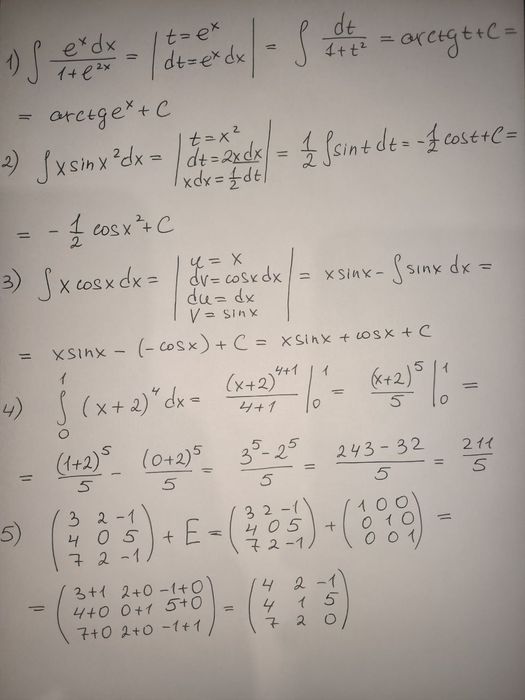 1) ∫ e^x dx / 1+e^2x = | t = e^x, dt = e^x dx | = ∫ dt / 1+t² = arctg t + C =
= arctg e^x + C
2) ∫ x sin x² dx = | t = x², dt = 2x dx, x dx = 1/2 dt | = 1/2 ∫ sin t dt = - 1/2 cos t + C =
= - 1/2 cos x² + C
3) ∫ x cos x dx = | u = x, dv = cos x dx, du = dx, v = sin x | = x sin x - ∫ sin x dx =
= x sin x - (- cos x) + C = x sin x + cos x + C
4) ∫₀¹ (x+2)⁴ dx = (x+2)^4+1 / 4+1 |₀¹ = (x+2)⁵ / 5 |₀¹ =
= (1+2)⁵ / 5 - (0+2)⁵ / 5 = 3⁵ - 2⁵ / 5 = 243 - 32 / 5 = 211 / 5
5) (3 2 -1; 4 0 5; 7 2 -1) + E = (3 2 -1; 4 0 5; 7 2 -1) + (1 0 0; 0 1 0; 0 0 1) =
= (3+1 2+0 -1+0; 4+0 0+1 5+0; 7+0 2+0 -1+1) = (4 2 -1; 4 1 5; 7 2 0)